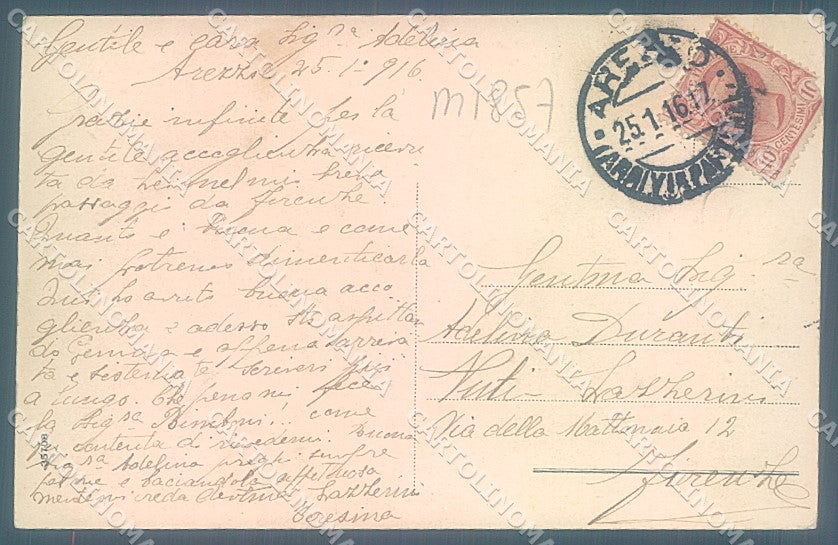 Gentile e cara Sig.ra Adelina
Arezzo 25.1.916.
Grazie infinite per la
gentile accoglienza ricevu
ta da lei nel mio breve
passaggio da Firenze
Quanto è buona e come
mai potremo dimenticarla
Qui ho avuto buona acco
glienza e adesso sto aspettan
do e appena arriva
ta e sistemata scriverò più
a lungo. Che pena mi fece
la Sig.ra come
contenta di rivedermi. Buona
Sig.ra Adelina preghi sempre
per me e baciandola affettuosa
mente mi creda Lazzerini
Teresina
m1857
AREZZO
25.1.16.17
10 CENTESIMI 10
Gentma Sig.ra
Adelina Duranti
Nuti-Lazzerini
Via della Mattonaia 12
Firenze
CARTOLINOMANIA